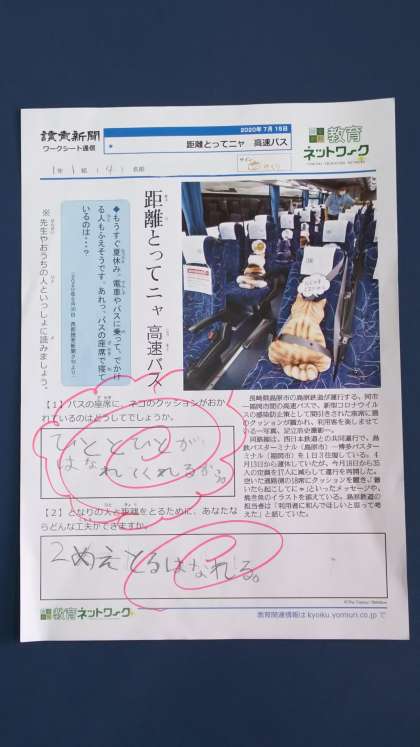 讀売新聞
ワークシート通信
2020年7月15日
距離とってニャ 高速バス
教育
ネットワーク
1年1組(4)名前
サイン
距離とってニャ 高速バス
◆もうすぐ夏休み。電車やバスに乗って、でかけ
る人もふえそうです。あれっ、バスの座席で寝て
いるのは…?
※先生やおうちの人といっしょに読みましょう。
【1】バスの座席に、ネコのクッションがおか
れているのはどうしてでしょうか。
ひととひとが、
はなれてくれるから。
【2】となりの人と距離をとるために、あなたな
らどんな工夫ができますか。
2めえとるはなれる。
長崎県島原市の島原鉄道が運行する、同市
―福岡市間の高速バスで、新型コロナウイル
スの感染防止策として間引きされた座席に猫
のクッションが置かれ、利用客を楽しませて
いる=写真、足立浩史撮影=。
同路線は、西日本鉄道との共同運行で、島
鉄バスターミナル(島原市)―博多バスター
ミナル(福岡市)を1日3往復している。4
月13日から運休していたが、今月18日から35
人の定員を17人に減らして運行を再開した。
空いた通路側の席にクッションを置き、
いたら起こしてにゃ」といったメッセージや、
焼き魚のイラストを添えている。島原鉄道の
担当者は「利用者に和んでほしいと思って考
えた」と話していた。
教育ネットワーク
教育関連情報は kyoiku.yomiuri.co.jp で